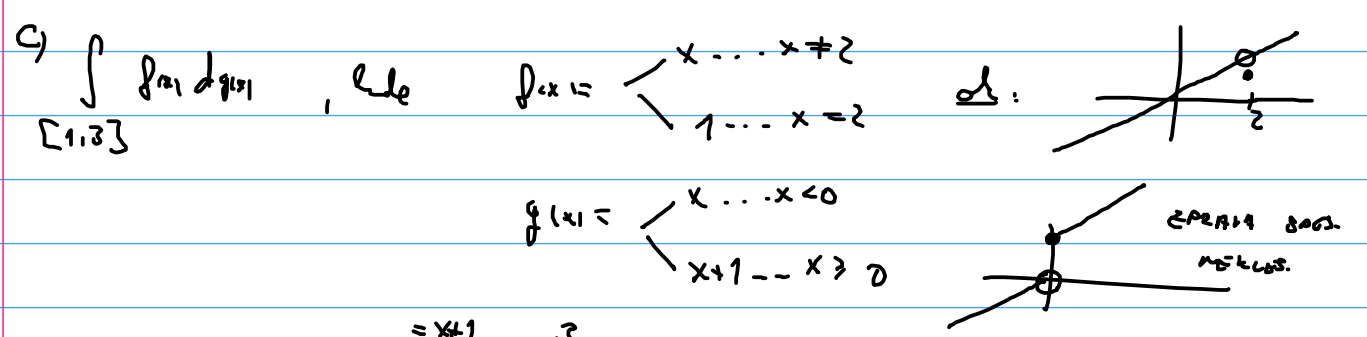 C) ∫ f(x) dg(x) , kde f(x) = x ... x ≠ 2
[1,3] 1 ... x = 2
2
g(x) = x ... x < 0
x+1 ... x ≥ 0
ZPRAVA SPOJ.
NEKLES.
= x+1 3